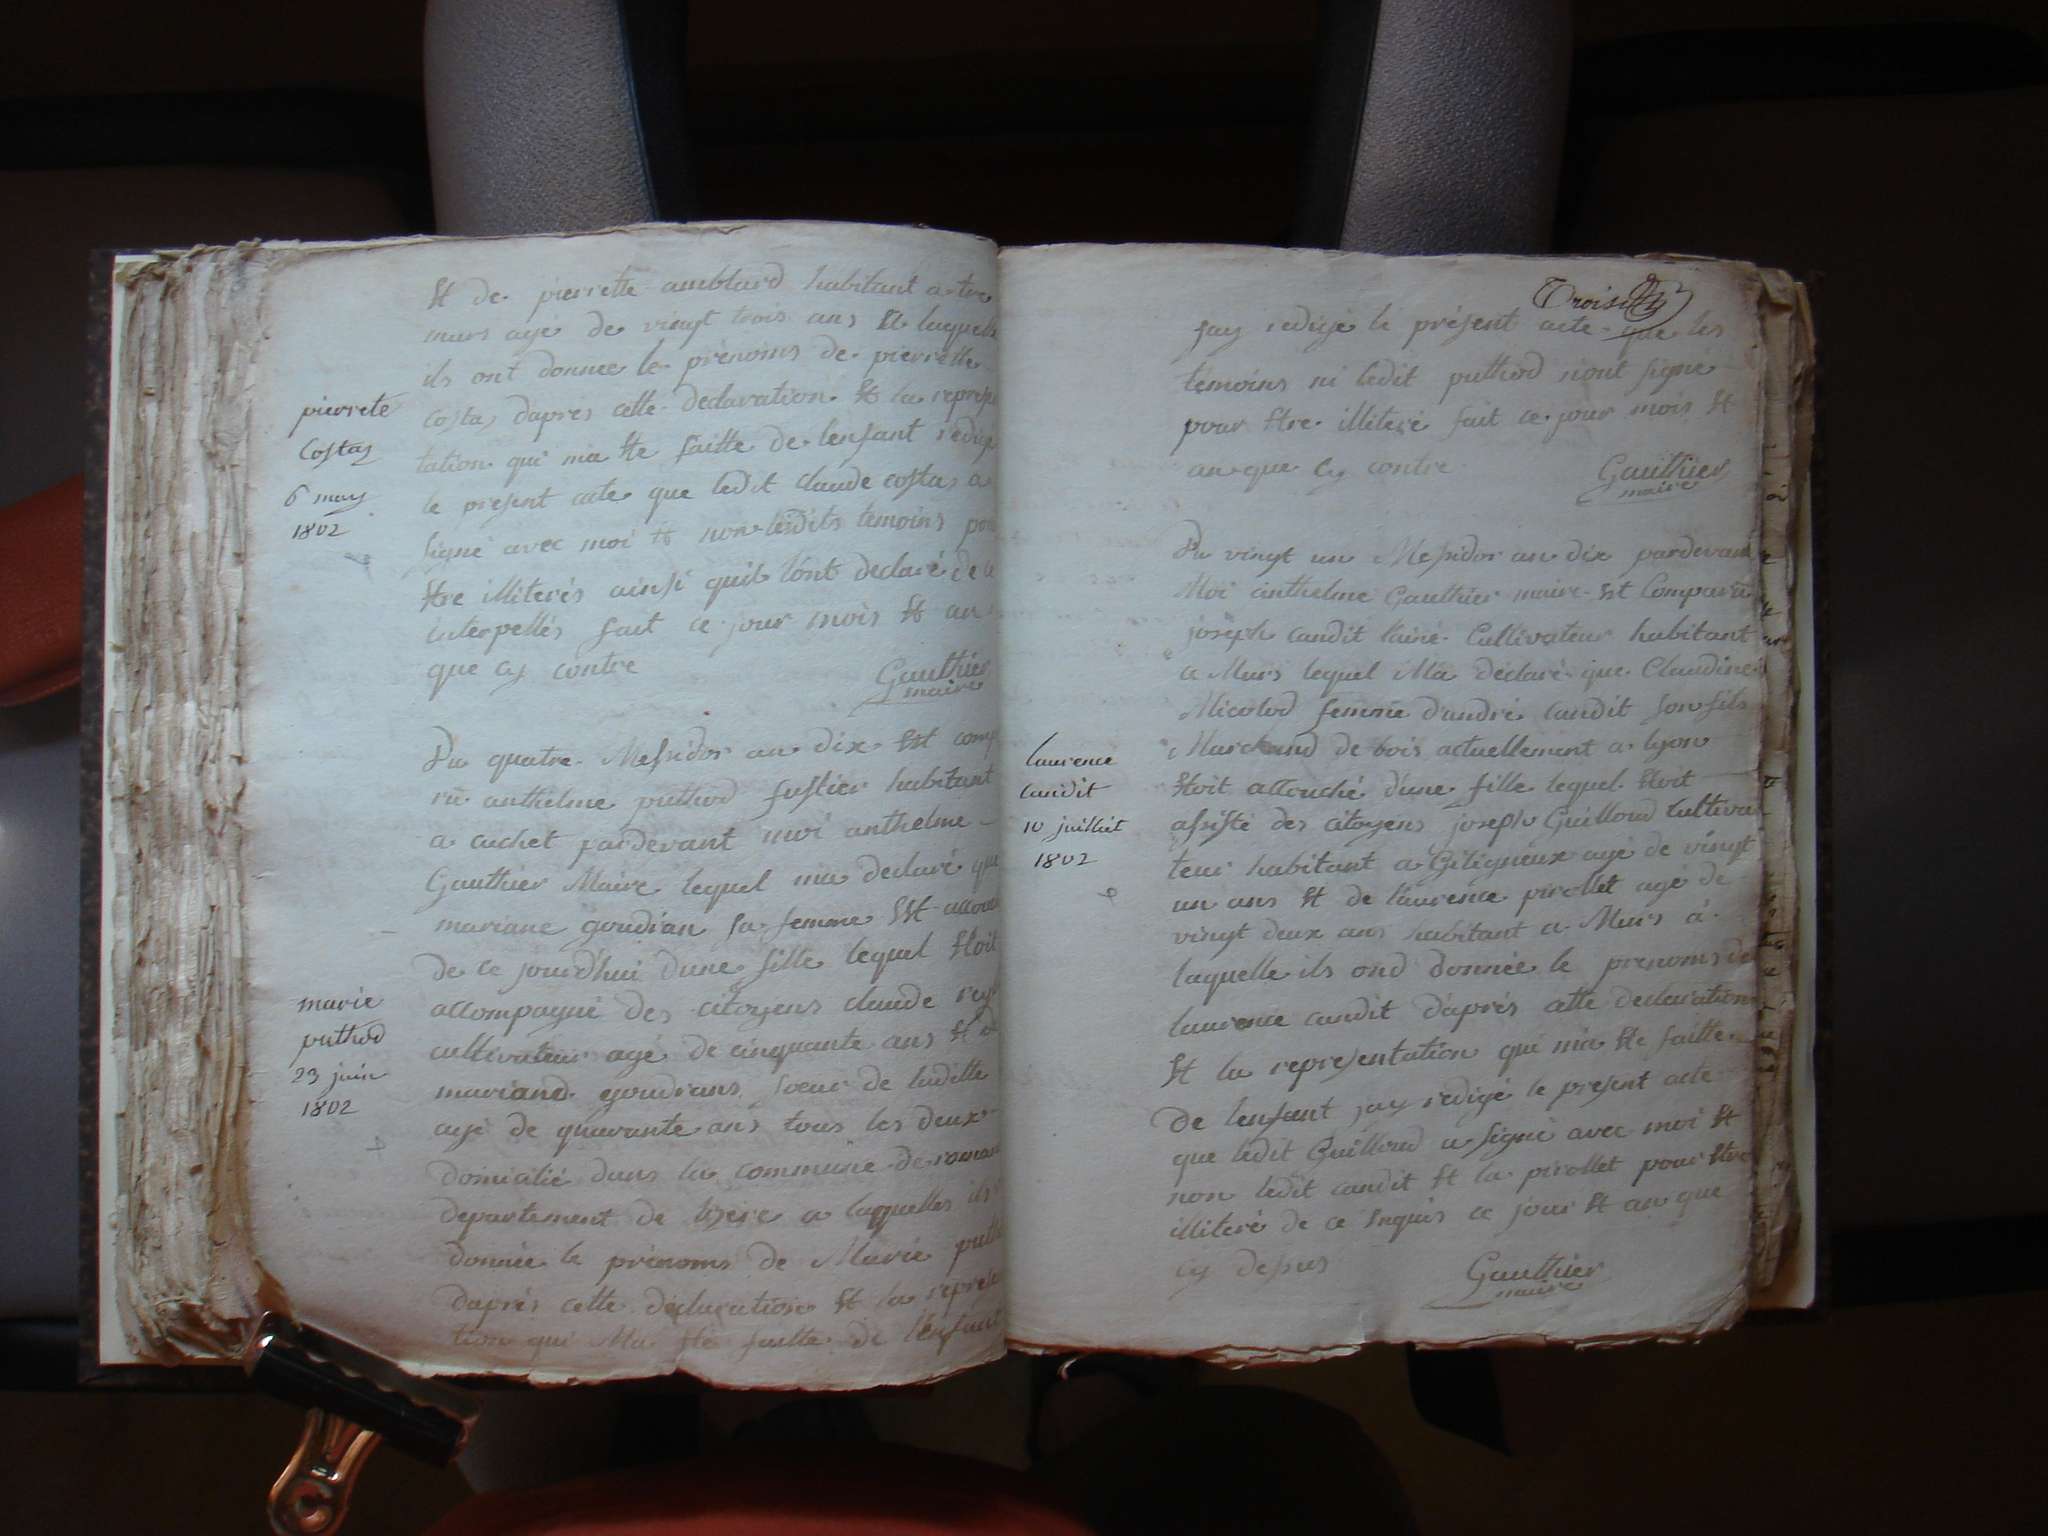 Et de pierrette amblard habitant a
murs agé de vingt trois ans Et laquelle
ils ont donnee le prenoms de pierrette
costaz daprès cette declaration Et la represe
tation qui ma Ete faitte de lenfant redigé
le present acte que ledit claude costaz a
signé avec moi Et non lesdits temoins pour
Etre illiterés ainsi quils lont declaré de ce
interpellés fait ce jour mois Et an
que cy contre
Gauthier
maire
pierrete
Costaz
6 may
1802
Du quatre Messidor an dix Est compa
ru anthelme puthod fustier habitant
a cuchet pardevant moi anthelme
Gauthier Maire lequel ma declaré que
mariane goudian sa femme Est
de ce jourdhui dune fille lequel Etoit
accompagné des citoyens claude rey
cultivateur agé de cinquante ans Et de
mariane goudrans soeur de laditte
agé de quarante ans tous les deux
domicilié dans la commune de
departement de lizere a laquelles ils
donnée le prénoms de Marie puthod
daprés cette déclaration Et la represe
tion qui Ma Ete faitte de lenfant
marie
puthod
23 juin
1802
Troisième
jay redigé le présent acte que les
témoins ni ledit puthod nont signé
pour Etre illiteré fait ce jour mois Et
an que cy contre
Gauthier
maire
Du vingt un Messidor an dix pardevant
Moi anthelme Gauthier maire Est Comparu
joseph candit lainé Cultivateur habitant
a Murs lequel Ma déclaré que Claudine
Micolod femme dandré Candit son fils
Marchand de bois actuellement a lyon
Etoit accouché d'une fille lequel Etoit
assisté des citoyens joseph Guilloud Cultiva
teur habitant a Gélignieux agé de vingt
un ans Et de laurence pirollet agé de
vingt deux ans habitant a Murs à
laquelle ils ond donnée le prenoms de
laurence candit d'aprés cette declaration
Et la representation qui ma Ete faitte
De lenfant jay redigé le present acte
que ledit Guilloud a signé avec moi Et
non ledit candit Et la pirollet pour Etre
illiteré de ce Enquis ce jour Et an que
cy dessus
Gauthier
maire
laurence
candit
10 juilliet
1802